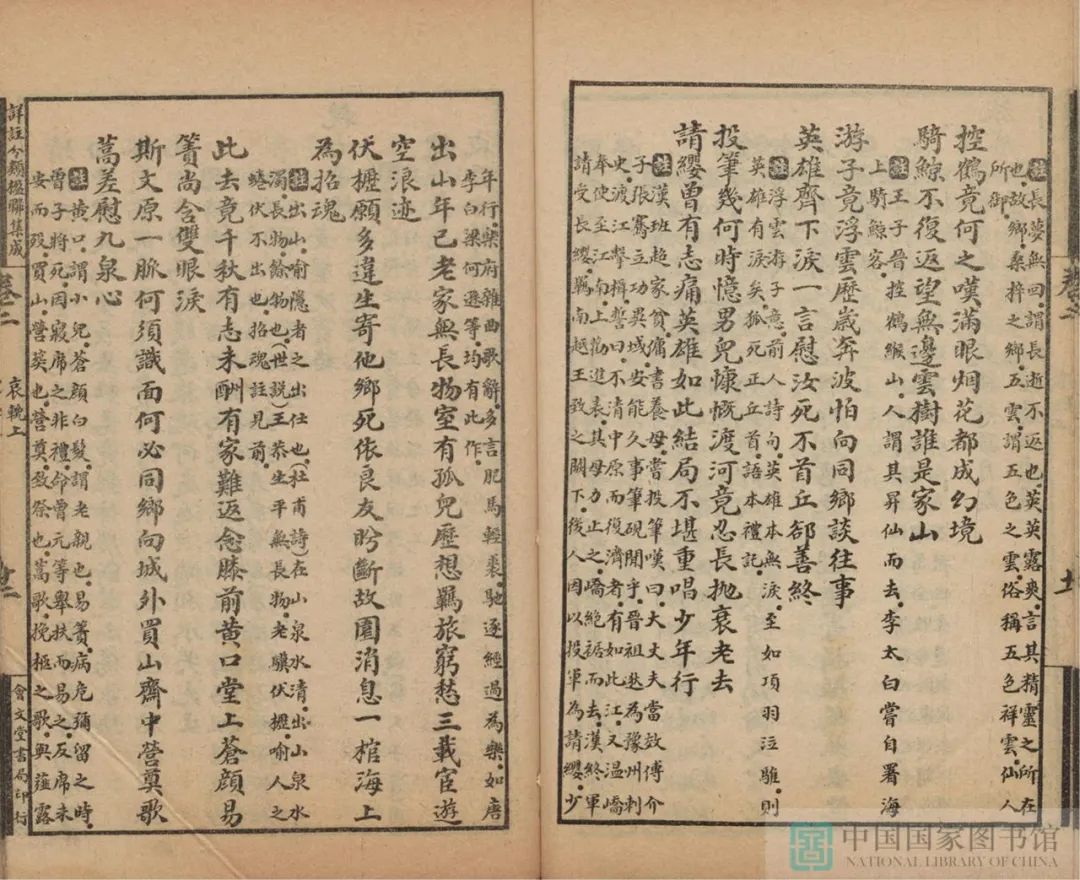 註長夢無回謂長逝不返也英英露爽言其精靈之所在
也故鄉桑梓之鄉五雲謂五色之雲俗稱五色祥雲仙人
所御
控鶴竟何之嘆滿眼烟花都成幻境
騎鯨不復返望無邊雲樹誰是家山
註王子晉控鶴緱山人謂其昇仙而去李太白嘗自署海
上騎鯨客
游子竟浮雲歷歲奔波怕向同鄉談往事
英雄齊下淚一言慰汝死不首丘郤善終
註浮雲游子意前人詩句英雄本無淚至如項羽泣騅則
英雄有淚矣狐死正丘首語本禮記
投筆幾何時憶男兒慷慨渡河竟忍長拋衰老去
請纓曾有志痛英雄如此結局不堪重唱少年行
註漢班超家貧傭書養母嘗投筆嘆曰大丈夫當效傅介
子張騫立功異域安能久事筆硯閒乎晉祖逖為豫州刺
史渡江擊楫誓曰不清中原而復濟者有如此江又溫嶠
奉使至江南上勸進表其母力止之嶠絕裾而去漢終軍
請受長纓羈南越王致之闕下後人因以投軍為請纓少
卷二
十一
年行樂府雜曲歌辭多言肥馬輕裘馳逐經過為樂如唐
李白梁何遜等均有此作
出山年已老家無長物室有孤兒歷想羈旅窮愁三載宦遊
空浪迹
伏櫪願多違生寄他鄉死依良友盻斷故園消息一棺海上
為招魂
註出山喻隱者之出仕也杜甫詩在山泉水清出山泉水
濁長物餘物也世說王恭生平無長物老驥伏櫪喻人之
蜷伏不出也招魂註見前
此去竟千秋有志未酬有家難返念膝前黃口堂上蒼顏易
簀尚含雙眼淚
斯文原一脈何須識面何必同鄉向城外買山齊中營奠歌
蒿差慰九泉心
註黃口謂小兒蒼顏白髮謂老親也易簀病危彌留之時
曾子將死因寢席之非禮命曾元等舉扶而易之反席未
安而歿買山營葬也營奠致祭也蒿歌挽柩之歌與薤露
詳註分類楹聯集成
卷二
哀輓上
會文堂書局印行
中国国家图书馆
NATIONAL LIBRARY OF CHINA